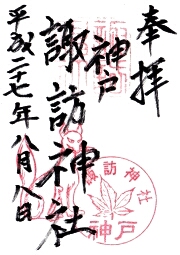 奉拝
神戸
諏訪神社
平成二十七年八月八日
諏訪神社
神戸